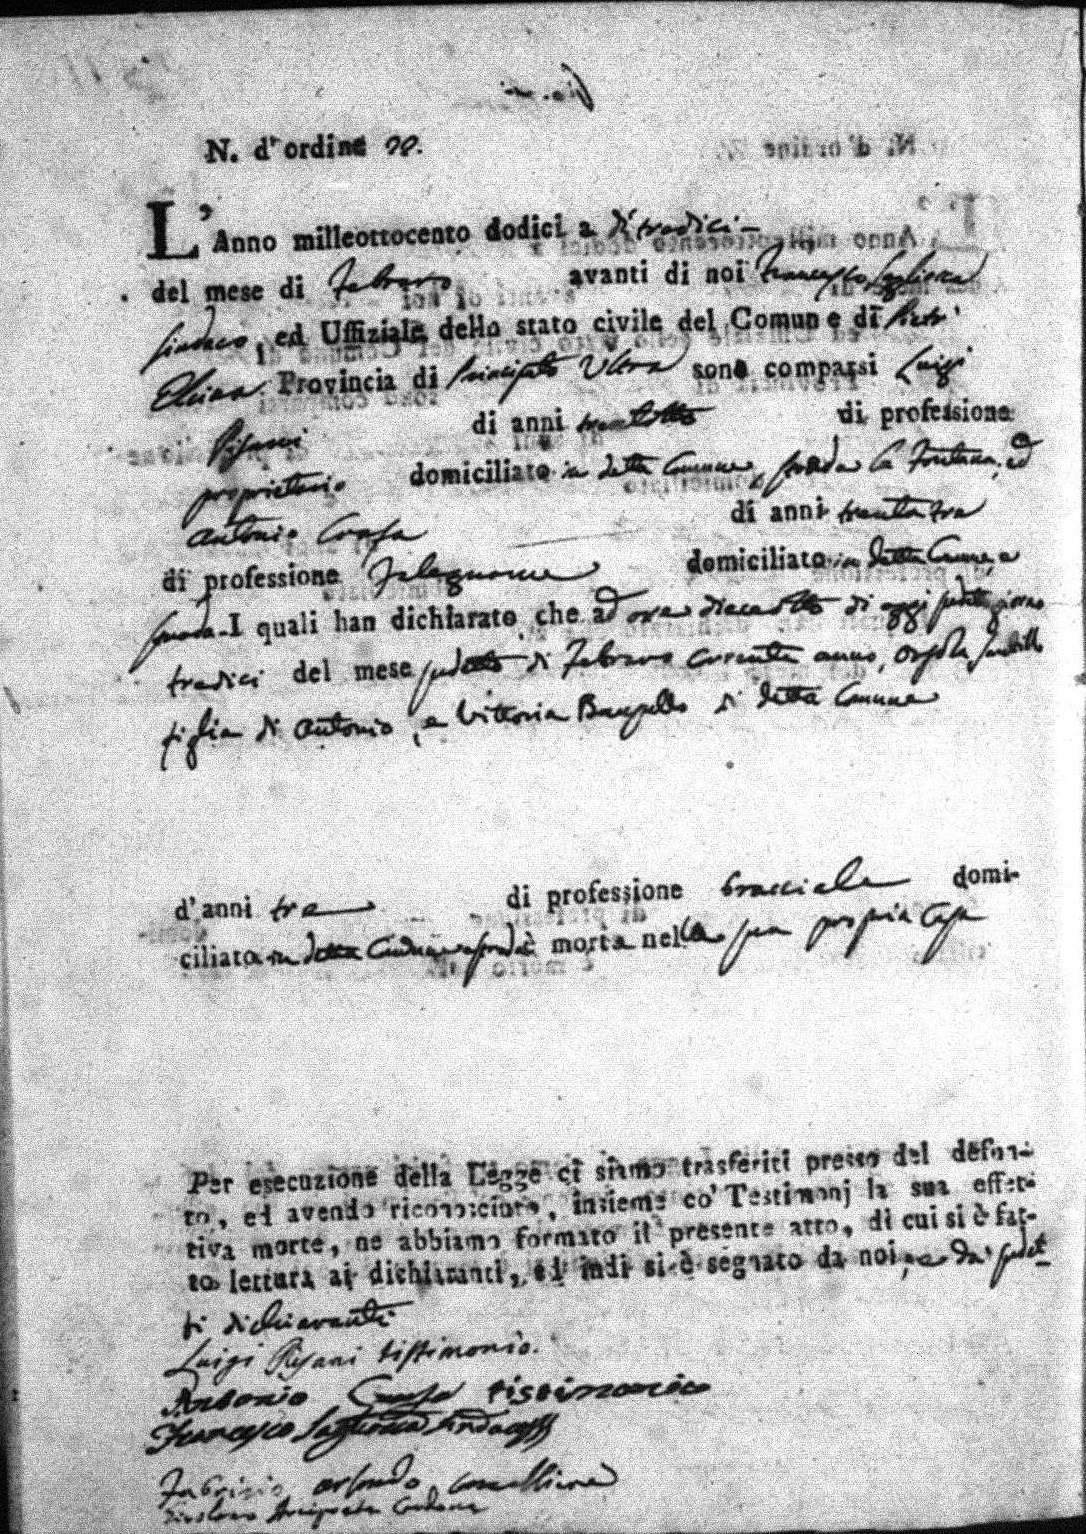 N. d'ordine
L'Anno milleottocento dodici a dì tredici
del mese di Febraro avanti di noi Francesco
Sindaco ed Uffiziale dello stato civile del Comune di Pietr'
Elcina Provincia di Principato Ultra sono comparsi Luigi
Pisani di anni trentotto di professione
proprietario domiciliato in detta Comune strada la Fontana, ed
Antonio di anni trentatre
di professione Falegname domiciliato in detta Comune, e
strada I quali han dichiarato che ad ore dieceotto di oggi giorno
tredici del mese sudetto di Febraro corrente anno, Orsola
figlia di Antonio, e Vittoria di detta Comune
d'anni tre di professione bracciale domi-
ciliata in detta Comune e strada è morta nella sua propria Casa
Per esecuzione della Legge ci siamo trasferiti presso del defon-
to, ed avendo riconosciuto, insieme co' Testimonj la sua effet-
tiva morte, ne abbiamo formato il presente atto, di cui si è fat-
to lettura ai dichiaranti, ed indi si è segnato da noi, e da' sudet-
ti dichiaranti
Luigi Pisani testimonio.
Antonio testimonio
Francesco Sindaco
Fabrizio Orlando cancelliere